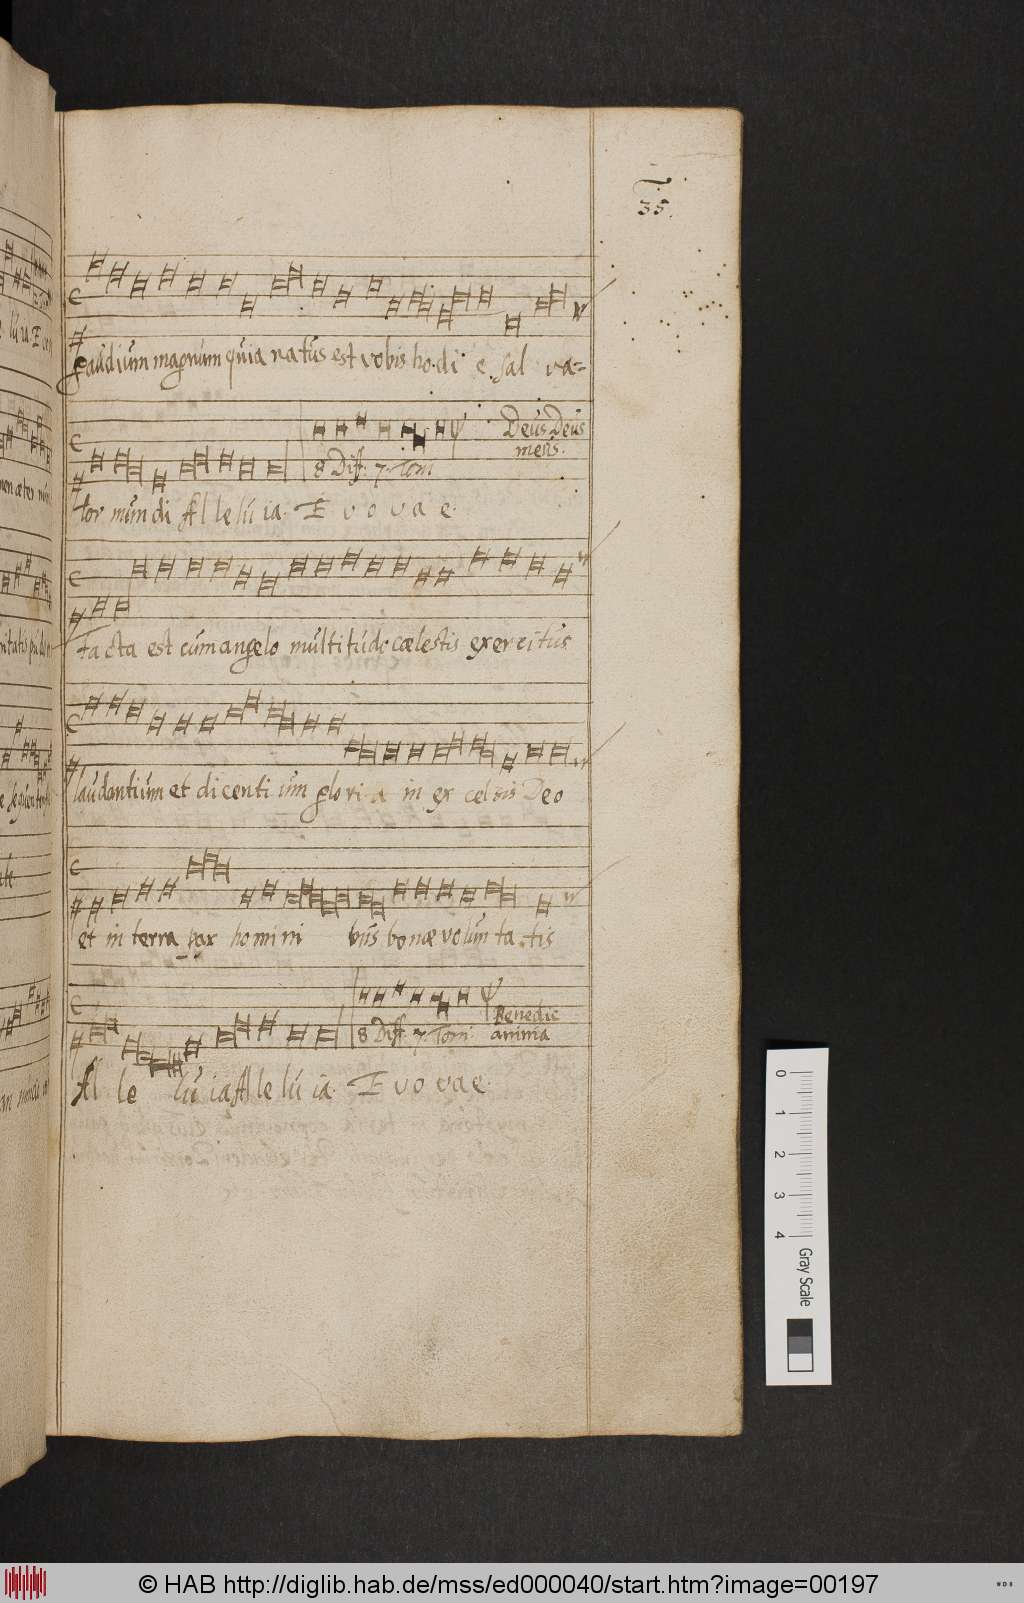 35.
gaudium magnum quia natus est vobis ho di e sal va=
Deus Deus
meus.
8 Diff: 7. Tom
tor mundi Al le lu ia. E v o v a e.
facta est cum angelo multitudo cælestis exercitus
laudantium et dicenti um glo ri a in ex celsis Deo
et in terra pax ho mi ni bus bonæ volun ta tis
Benedic
8 Diff. 7. Tom: anima
Al le lu ia Al le lu ia. E v o v a e.
0 1 2 3 4 Gray Scale
© HAB http://diglib.hab.de/mss/ed000040/start.htm?image=00197